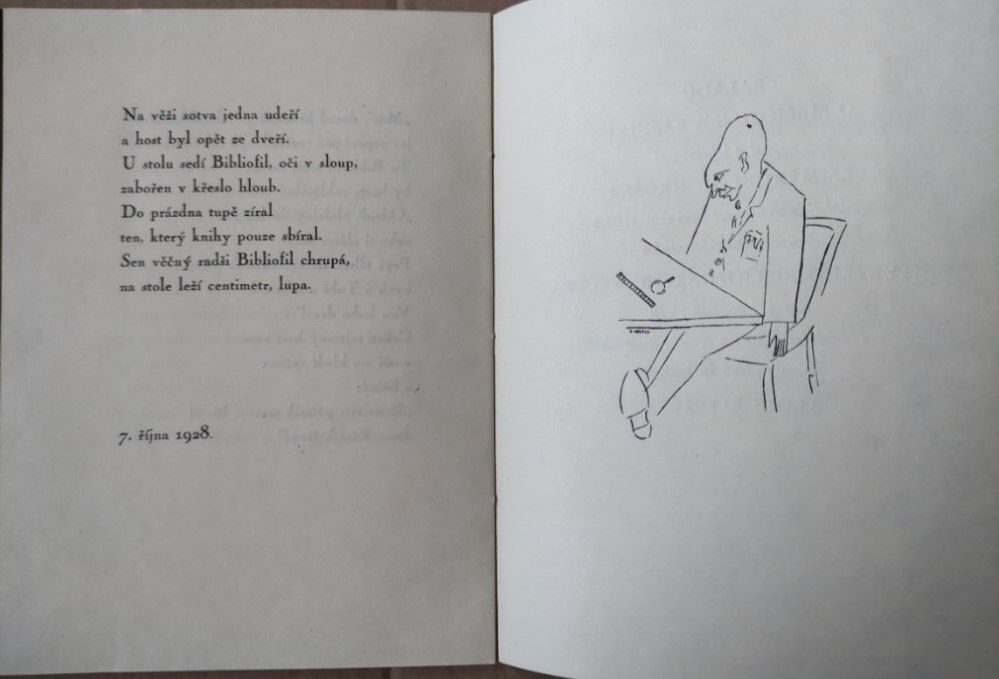 Na věži sotva jedna udeří
a host byl opět ze dveří.
U stolu sedí Bibliofil, oči v sloup,
zabořen v křeslo hloub.
Do prázdna tupě zíral
ten, který knihy pouze sbíral.
Sen věčný radši Bibliofil chrupá,
na stole leží centimetr, lupa.
7. října 1928.